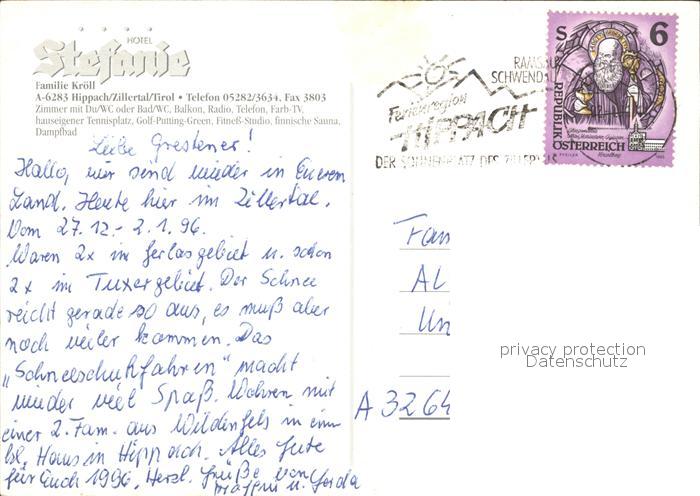 HOTEL
Stefanie
Familie Kröll
A-6283 Hippach/Zillertal/Tirol • Telefon 05282/3634, Fax 3803
Zimmer mit Du/WC oder Bad/WC, Balkon, Radio, Telefon, Farb-TV,
hauseigener Tennisplatz, Golf-Putting-Green, Fitneß-Studio, finnische Sauna,
Dampfbad
Liebe Grestener!
Hallo, wir sind wieder in Eurem
Land. Heute hier im Zillertal.
Vom 27.12.- 2.1.96.
Waren 2x im Gerlosgebiet u. schon
2x im Tuxergebiet. Der Schnee
reicht gerade so aus, es muß aber
noch weiter kommen. Das
„Schneeschuhfahren" macht
wieder viel Spaß. Wohnen mit
einer 2. Fam. aus Wildenfels in einem
Haus in Hippach. Alles Gute
für Euch 1996. Herzl. Grüße von
u. Gerda
RAMSAU
SCHWENDAU
Ferienregion
HIPPACH
DER SONNENPLATZ DES ZILLERTALS
S 6
REPUBLIK
ÖSTERREICH
Fam
Al
Un
A 3264
privacy protection
Datenschutz